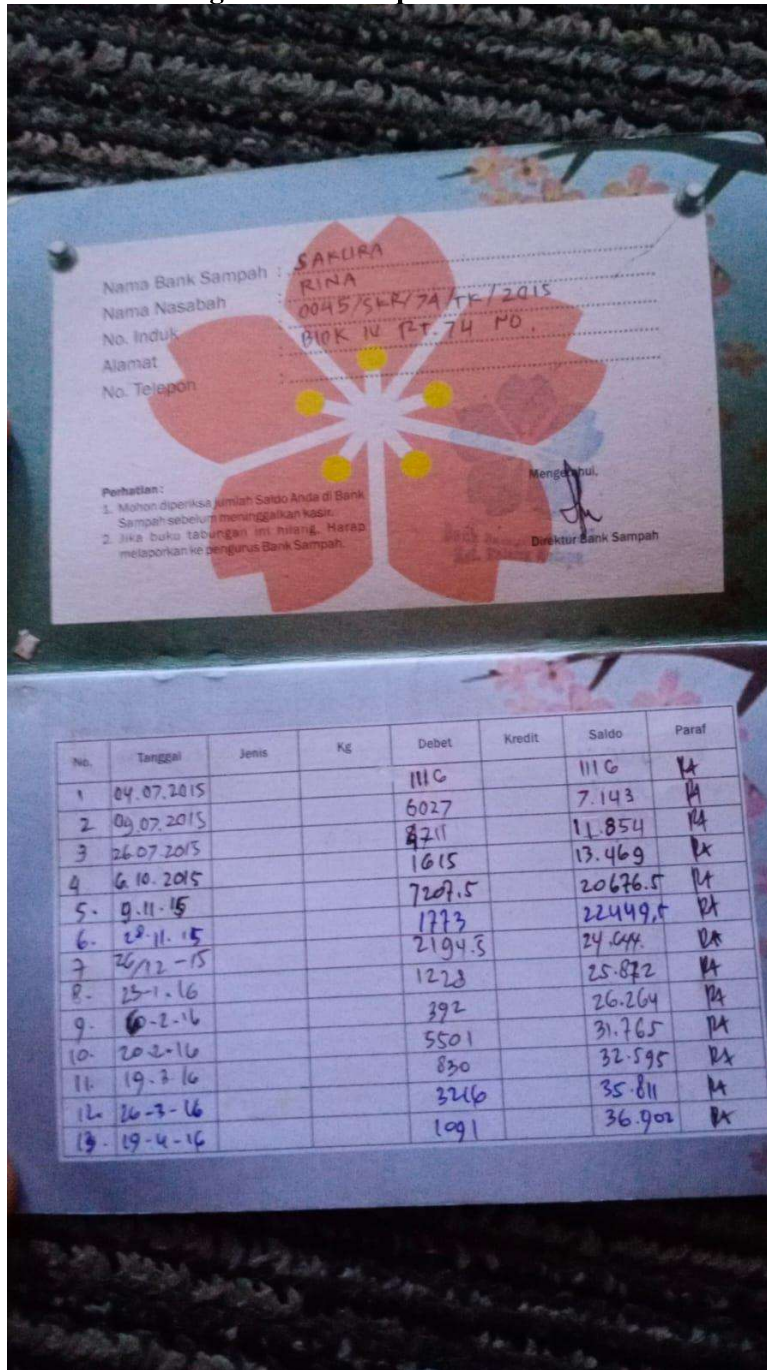 Nama Bank Sampah : SAKURA
Nama Nasabah : RINA
No. Induk : 0045/SKR/74/TK/2015
Alamat : BlOK IV RT. 74 NO.
No. Telepon :
Perhatian :
1. Mohon diperiksa jumlah Saldo Anda di Bank
Sampah sebelum meninggalkan kasir.
2. Jika buku tabungan ini hilang, Harap
melaporkan ke pengurus Bank Sampah.
Mengetahui,
Direktur Bank Sampah
No. Tanggal Jenis Kg Debet Kredit Saldo Paraf
1 04.07.2015 1116 1116
2 09.07.2015 6027 7.143
3 26.07.2015 4711 11.854
4 6.10.2015 1615 13.469
5. 9.11.15 7207.5 20676.5
6. 28.11.15 1773 22449,5
7 26/12-15 2194.5 24.644.
8. 23-1.16 1228 25.872
9. -2-16 392 26.264
10. 20.2.16 5501 31.765
11. 19.3.16 830 32.595
12. 26-3-16 3216 35.811
13. 19-4-16 1091 36.902